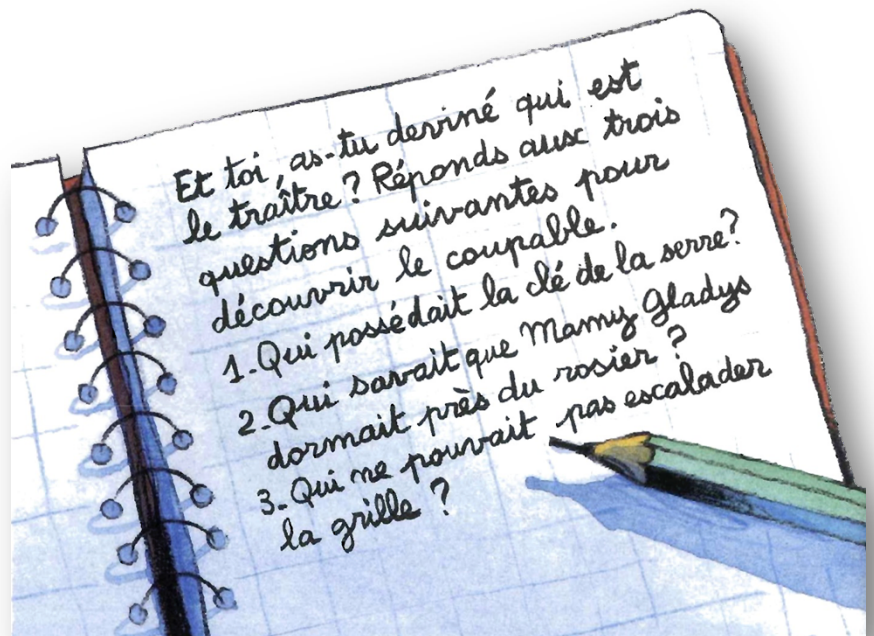 Et toi, as-tu deviné qui est
le traître ? Réponds aux trois
questions suivantes pour
découvrir le coupable.
1. Qui possédait la clé de la serre ?
2. Qui savait que Mamy Gladys
dormait près du rosier ?
3. Qui ne pouvait pas escalader
la grille ?